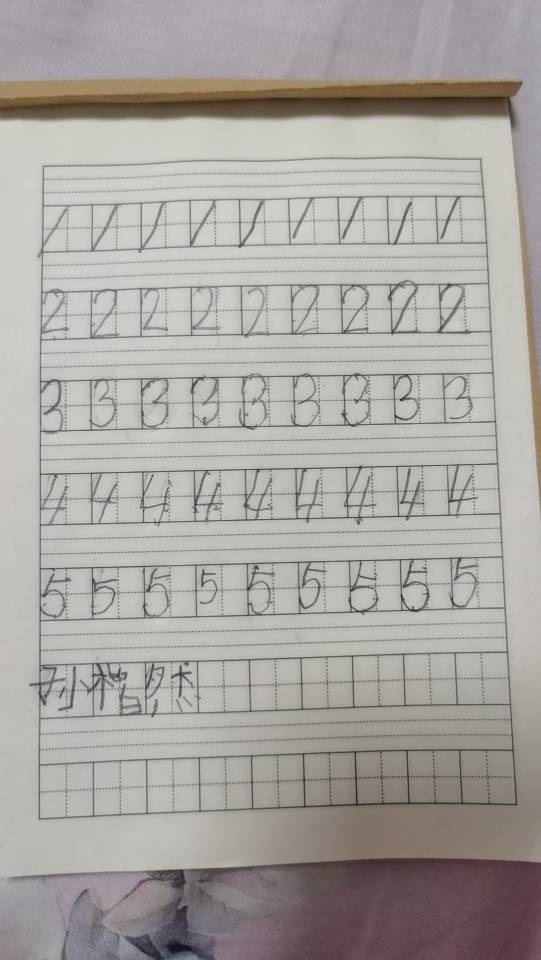 1 1 1 1 1 1 1 1 1
2 2 2 2 2 2 2 2 2
3 3 3 3 3 3 3 3 3
4 4 4 4 4 4 4 4 4
5 5 5 5 5 5 5 5 5
孙楷然